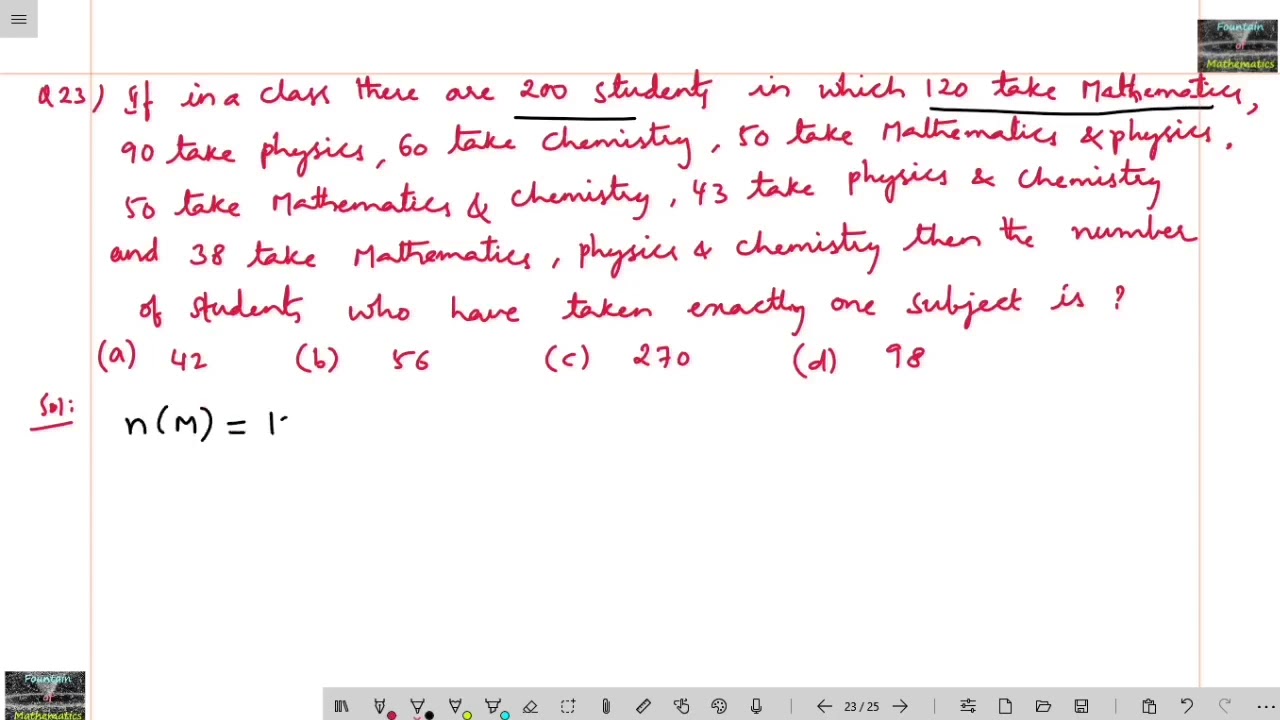 Fountain
of
Mathematics
Q23) If in a class there are 200 students in which 120 take Mathematics,
90 take physics, 60 take chemistry, 50 take Mathematics & physics.
50 take Mathematics & chemistry, 43 take physics & chemistry
and 38 take Mathematics, physics & chemistry then the number
of students who have taken exactly one subject is ?
(a) 42 (b) 56 (c) 270 (d) 98
Sol:
n(M) = 1
Fountain
of
Mathematics
23 / 25